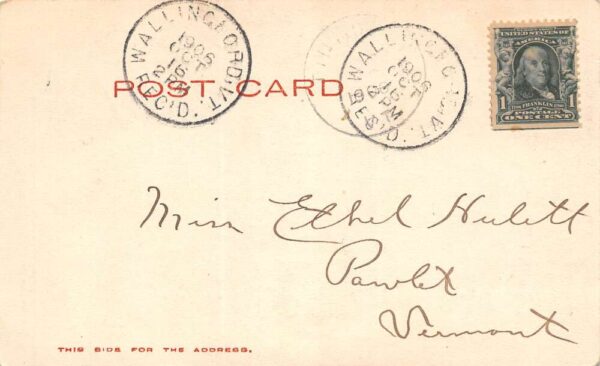 WALLINGFORD, VT.
1906
OCT
16
2 PM
REC'D.
WALLINGFORD, VT.
1906
OCT
16
PM
REC'D.
POST CARD
UNITED STATES OF
AMERICA
1 FRANKLIN 1
POSTAGE
ONE CENT
Miss Ethel Hulett
Pawlet
Vermont
THIS SIDE FOR THE ADDRESS.